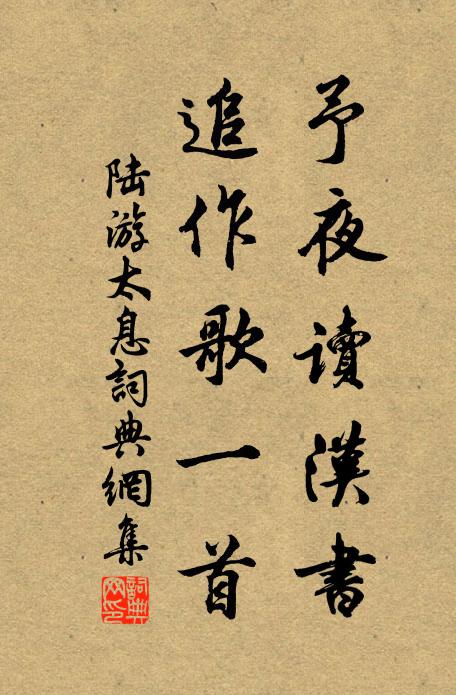 予夜讀漢書
追作歌一首
陆游太息詞典網集
詞典
网印